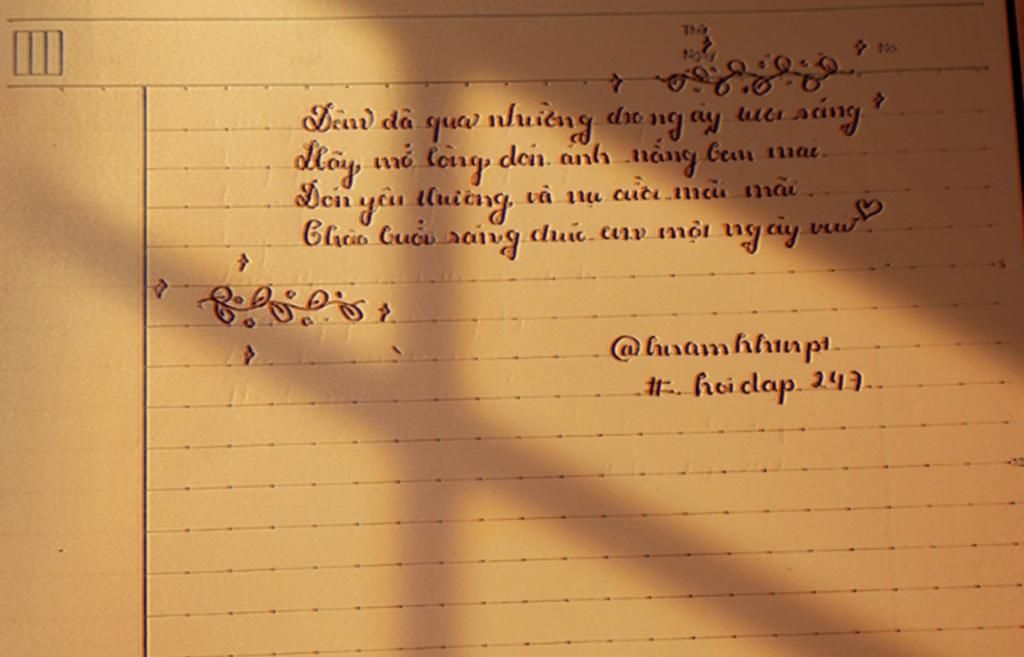 Thứ
Ngày
No.
Đêm đã qua nhường cho ngày tươi sáng
Hãy mở lòng đón ánh nắng ban mai
Đón yêu thương và nụ cười mãi mãi
Chào buổi sáng chúc em một ngày vui
# hoidap 247